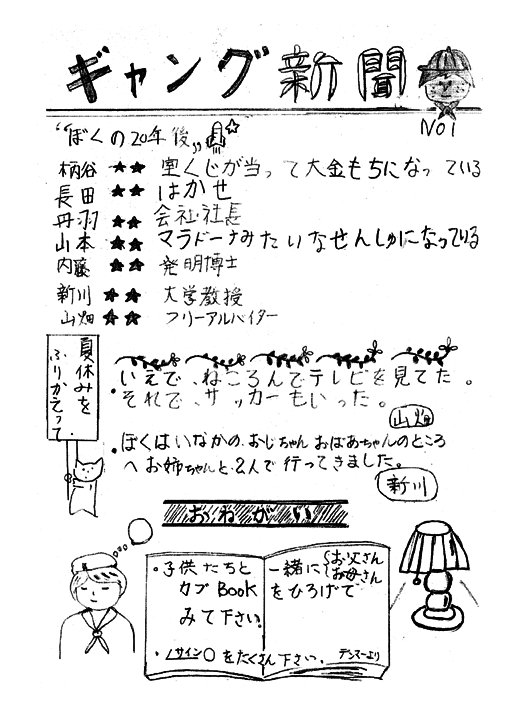 ギャング新聞
NO1
"ぼくの20年後"
柄谷 ★★ 宝くじが当って大金もちになっている
長田 ★★ はかせ
丹羽 ★★ 会社社長
山本 ★★ マラドーナみたいなせんしゅになっている
内藤 ★★ 発明博士
新川 ★★ 大学教授
山畑 ★★ フリーアルバイター
夏休みを
ふりかえって
・いえで、ねころんでテレビを見てた。
それで、サッカーもいった。
山畑
・ぼくはいなかの、おじちゃん おばあちゃんのところ
へお姉ちゃんと、2人で行ってきました。
新川
おねがい
・子供たちと
カブBook
みて下さい
一緒に{お父さん
お母さん
をひろげて
・サイン〇をたくさん下さい。デンマーより